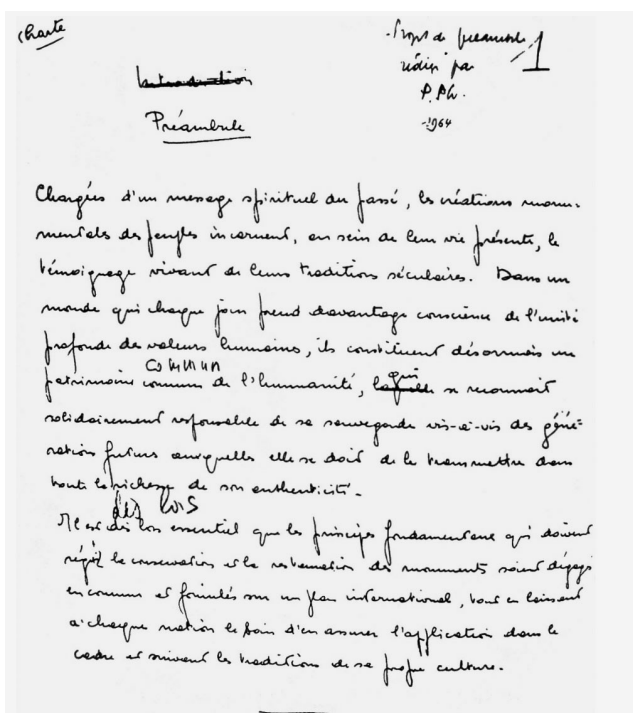 Charte
Projet de préambule
rédigé par
P. Ph.
1
-1964
Introduction
Préambule
Chargées d'un message spirituel du passé, les créations monu-
mentales des peuples incarnent, au sein de leur vie présente, le
témoignage vivant de leurs traditions séculaires. Dans un
monde qui chaque jour prend davantage conscience de l'unité
profonde des valeurs humaines, ils constituent désormais un
commun
patrimoine commun de l'humanité, laquelle qui se reconnait
solidairement responsable de sa sauvegarde vis-à-vis des géné-
rations futures auxquelles elle se doit de le transmettre dans
toute la richesse de son authenticité.
dès lors
Il est dès lors essentiel que les principes fondamentaux qui doivent
régir la conservation et la restauration des monuments soient dégagés
en commun et formulés sur un plan international, tout en laissant
à chaque nation le soin d'en assurer l'application dans le
cadre et suivant les traditions de sa propre culture.